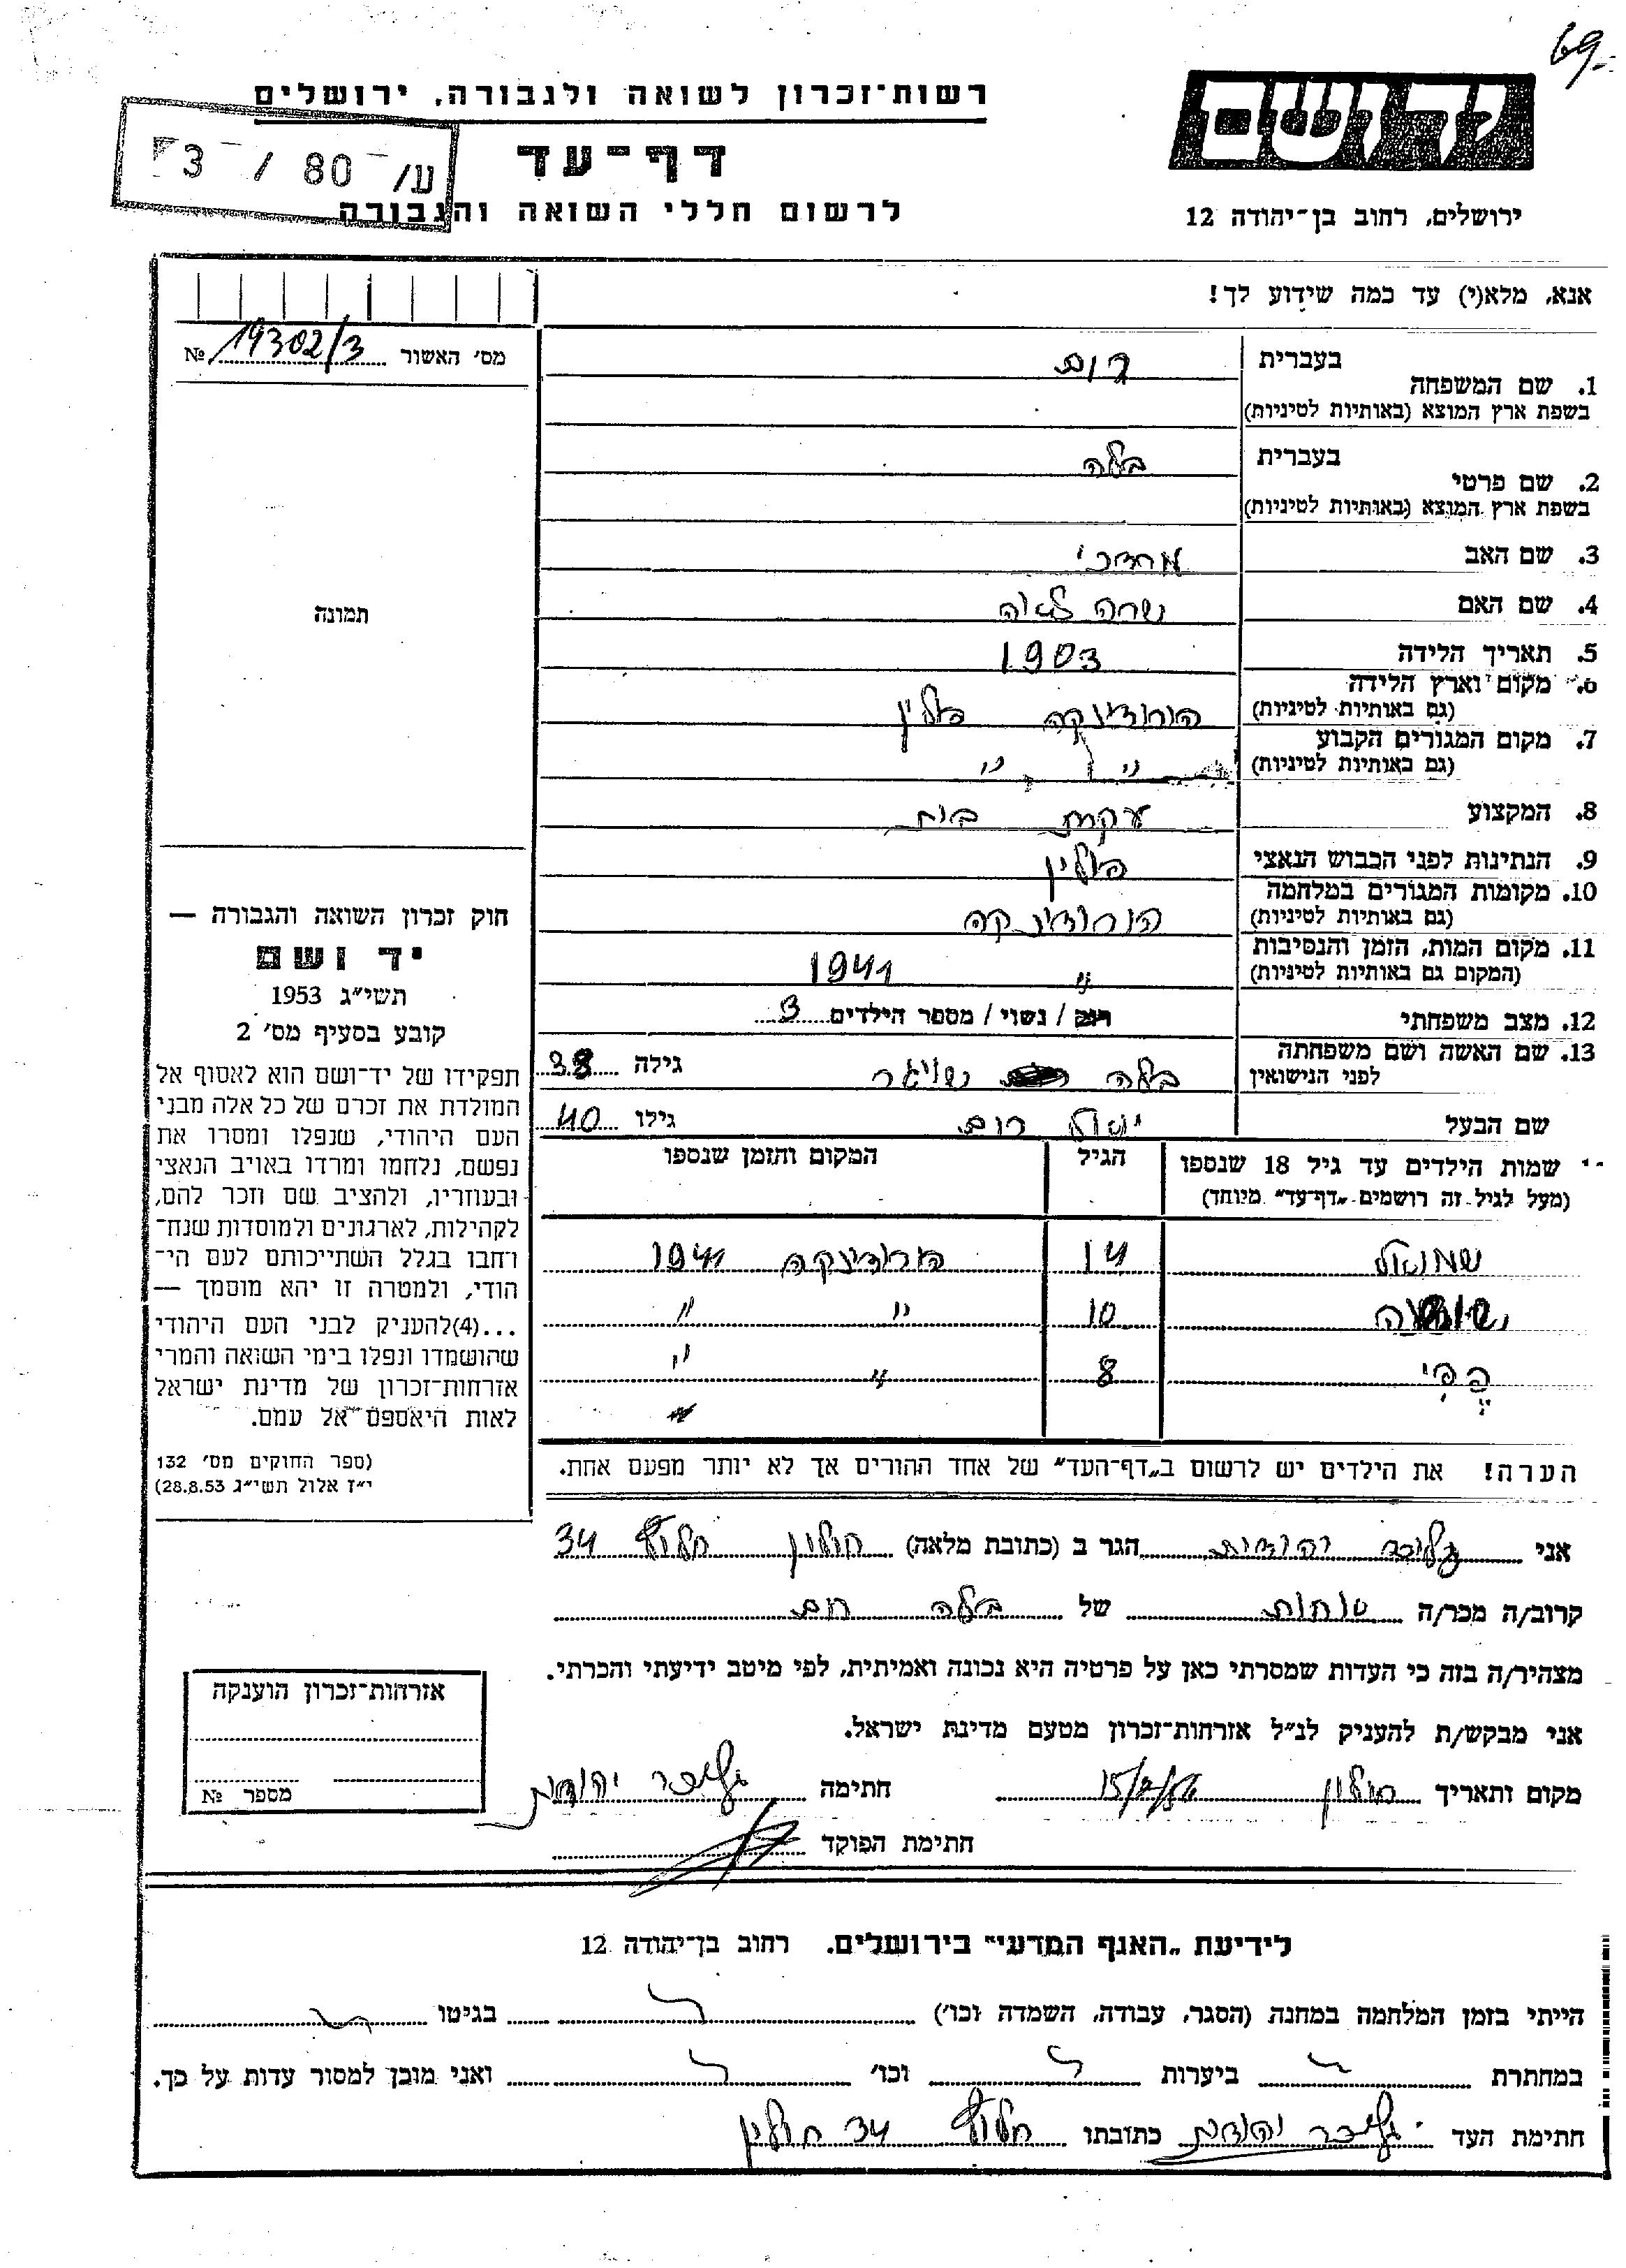 69-
יד ושם
רשות־זכרון לשואה ולגבורה, ירושלים
ע/ 80 / 3
דף־עד
ירושלים, רחוב בן־יהודה 12
לרשום חללי השואה והגבורה
אנא, מלא(י) עד כמה שידוע לך!
מס׳ האשור № 19302/3
1. שם המשפחה
בעברית רום
בשפת ארץ המוצא (באותיות לטיניות)
2. שם פרטי
בעברית בלה
בשפת ארץ המוצא (באותיות לטיניות)
3. שם האב מרדכי
4. שם האם שרה לאה
5. תאריך הלידה 1903
6. מקום וארץ הלידה
(גם באותיות לטיניות) הורודינקה פולין
7. מקום המגורים הקבוע
(גם באותיות לטיניות) " "
8. המקצוע עקרת בית
9. הנתינות לפני הכבוש הנאצי פולין
10. מקומות המגורים במלחמה
(גם באותיות לטיניות) הורודינקה
11. מקום המות, הזמן והנסיבות
(המקום גם באותיות לטיניות) " 1941
12. מצב משפחתי רוק / נשוי / מספר הילדים 3
13. שם האשה ושם משפחתה
לפני הנישואין בלה שויגר גילה 38
שם הבעל יואל רום גילו 40
שמות הילדים עד גיל 18 שנספו הגיל המקום והזמן שנספו
(מעל לגיל זה רושמים „דף־עד״ מיוחד)
שמואל 14 הורודינקה 1941
10 " "
פפי 8 " "
"
הערה! את הילדים יש לרשום ב„דף־העד״ של אחד ההורים אך לא יותר מפעם אחת.
תמונה
חוק זכרון השואה והגבורה —
יד ושם
תשי״ג 1953
קובע בסעיף מס׳ 2
תפקידו של יד־ושם הוא לאסוף אל
המולדת את זכרם של כל אלה מבני
העם היהודי, שנפלו ומסרו את
נפשם, נלחמו ומרדו באויב הנאצי
ובעוזריו, ולהציב שם וזכר להם,
לקהילות, לארגונים ולמוסדות שנח־
רחבו בגלל השתייכותם לעם הי־
הודי, ולמטרה זו יהא מוסמך —
...(4)להעניק לבני העם היהודי
שהושמדו ונפלו בימי השואה והמרי
אזרחות־זכרון של מדינת ישראל
לאות היאספם אל עמם.
(ספר החוקים מס׳ 132
י״ז אלול תשי״ג 28.8.53)
אני יהודית הגר ב (כתובת מלאה) חולון 34
קרוב/ה מכר/ה של בלה רום
מצהיר/ה בזה כי העדות שמסרתי כאן על פרטיה היא נכונה ואמיתית, לפי מיטב ידיעתי והכרתי.
אני מבקש/ת להעניק לנ״ל אזרחות־זכרון מטעם מדינת ישראל.
מקום ותאריך חולון חתימה יהודית
חתימת הפוקד
אזרחות־זכרון הוענקה
מספר №
לידיעת „האגף המדעי״ בירושלים. רחוב בן־יהודה 12
הייתי בזמן המלחמה במחנה (הסגר, עבודה, השמדה וכו׳) בגיטו
במחתרת ביערות וכו׳ ואני מובן למסור עדות על כך.
חתימת העד יהודית כתובתו 34 חולון